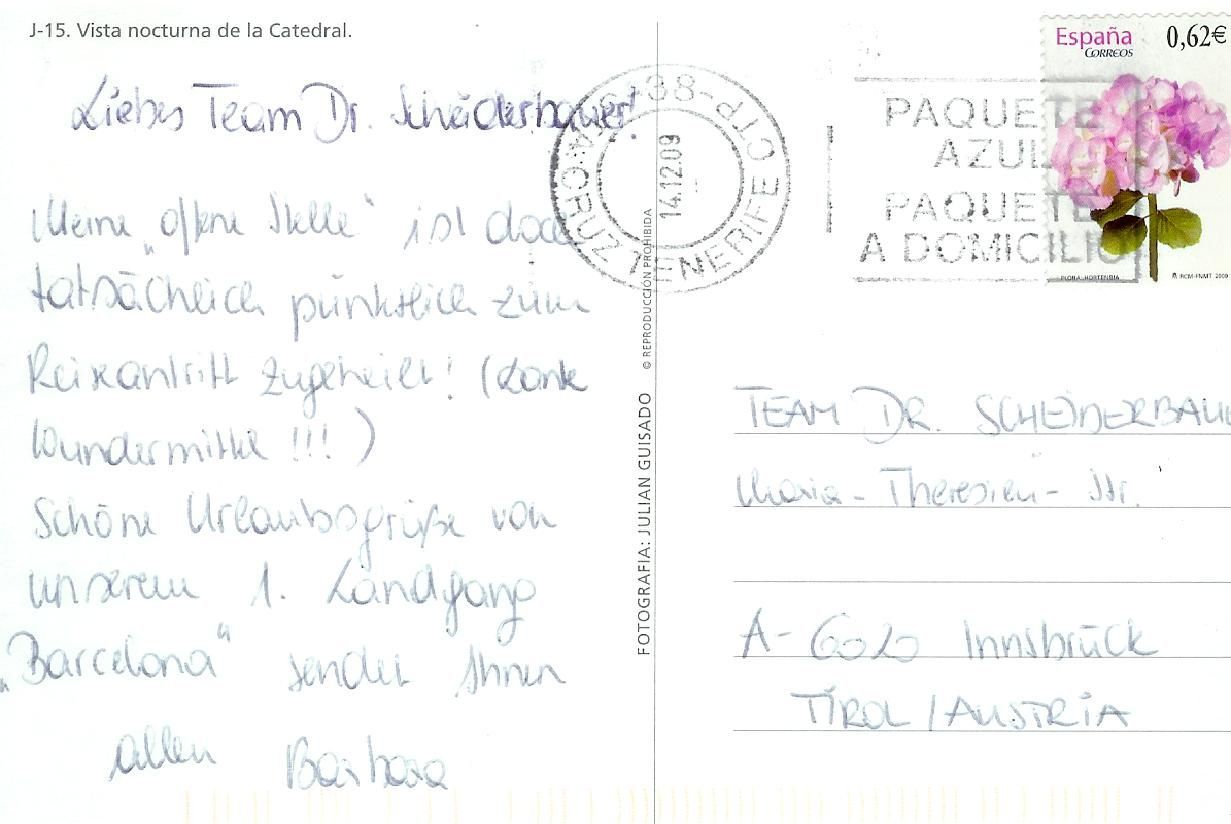 J-15. Vista nocturna de la Catedral.
Liebes Team Dr. Scheiderbauer!
Meine „offene Stelle“ ist doch
tatsächlich pünktlich zum
Reiseantritt zugeheilt! (dank
Wundermittel !!!)
Schöne Urlaubsgrüße von
unserem 1. Landgang
„Barcelona“ sendet Ihnen
allen Barbara
FOTOGRAFIA: JULIAN GUISADO © REPRODUCCIÓN PROHIBIDA
38-CTP
STA.CRUZ TENERIFE
14.12.09
PAQUETE
AZUL
PAQUETE
A DOMICILIO
España
CORREOS
0,62€
FLORA-HORTENSIA
RCM-FNMT 2009
TEAM DR. SCHEIDERBAU
Maria-Theresien-Str.
A-6020 Innsbrück
TIROL/AUSTRIA